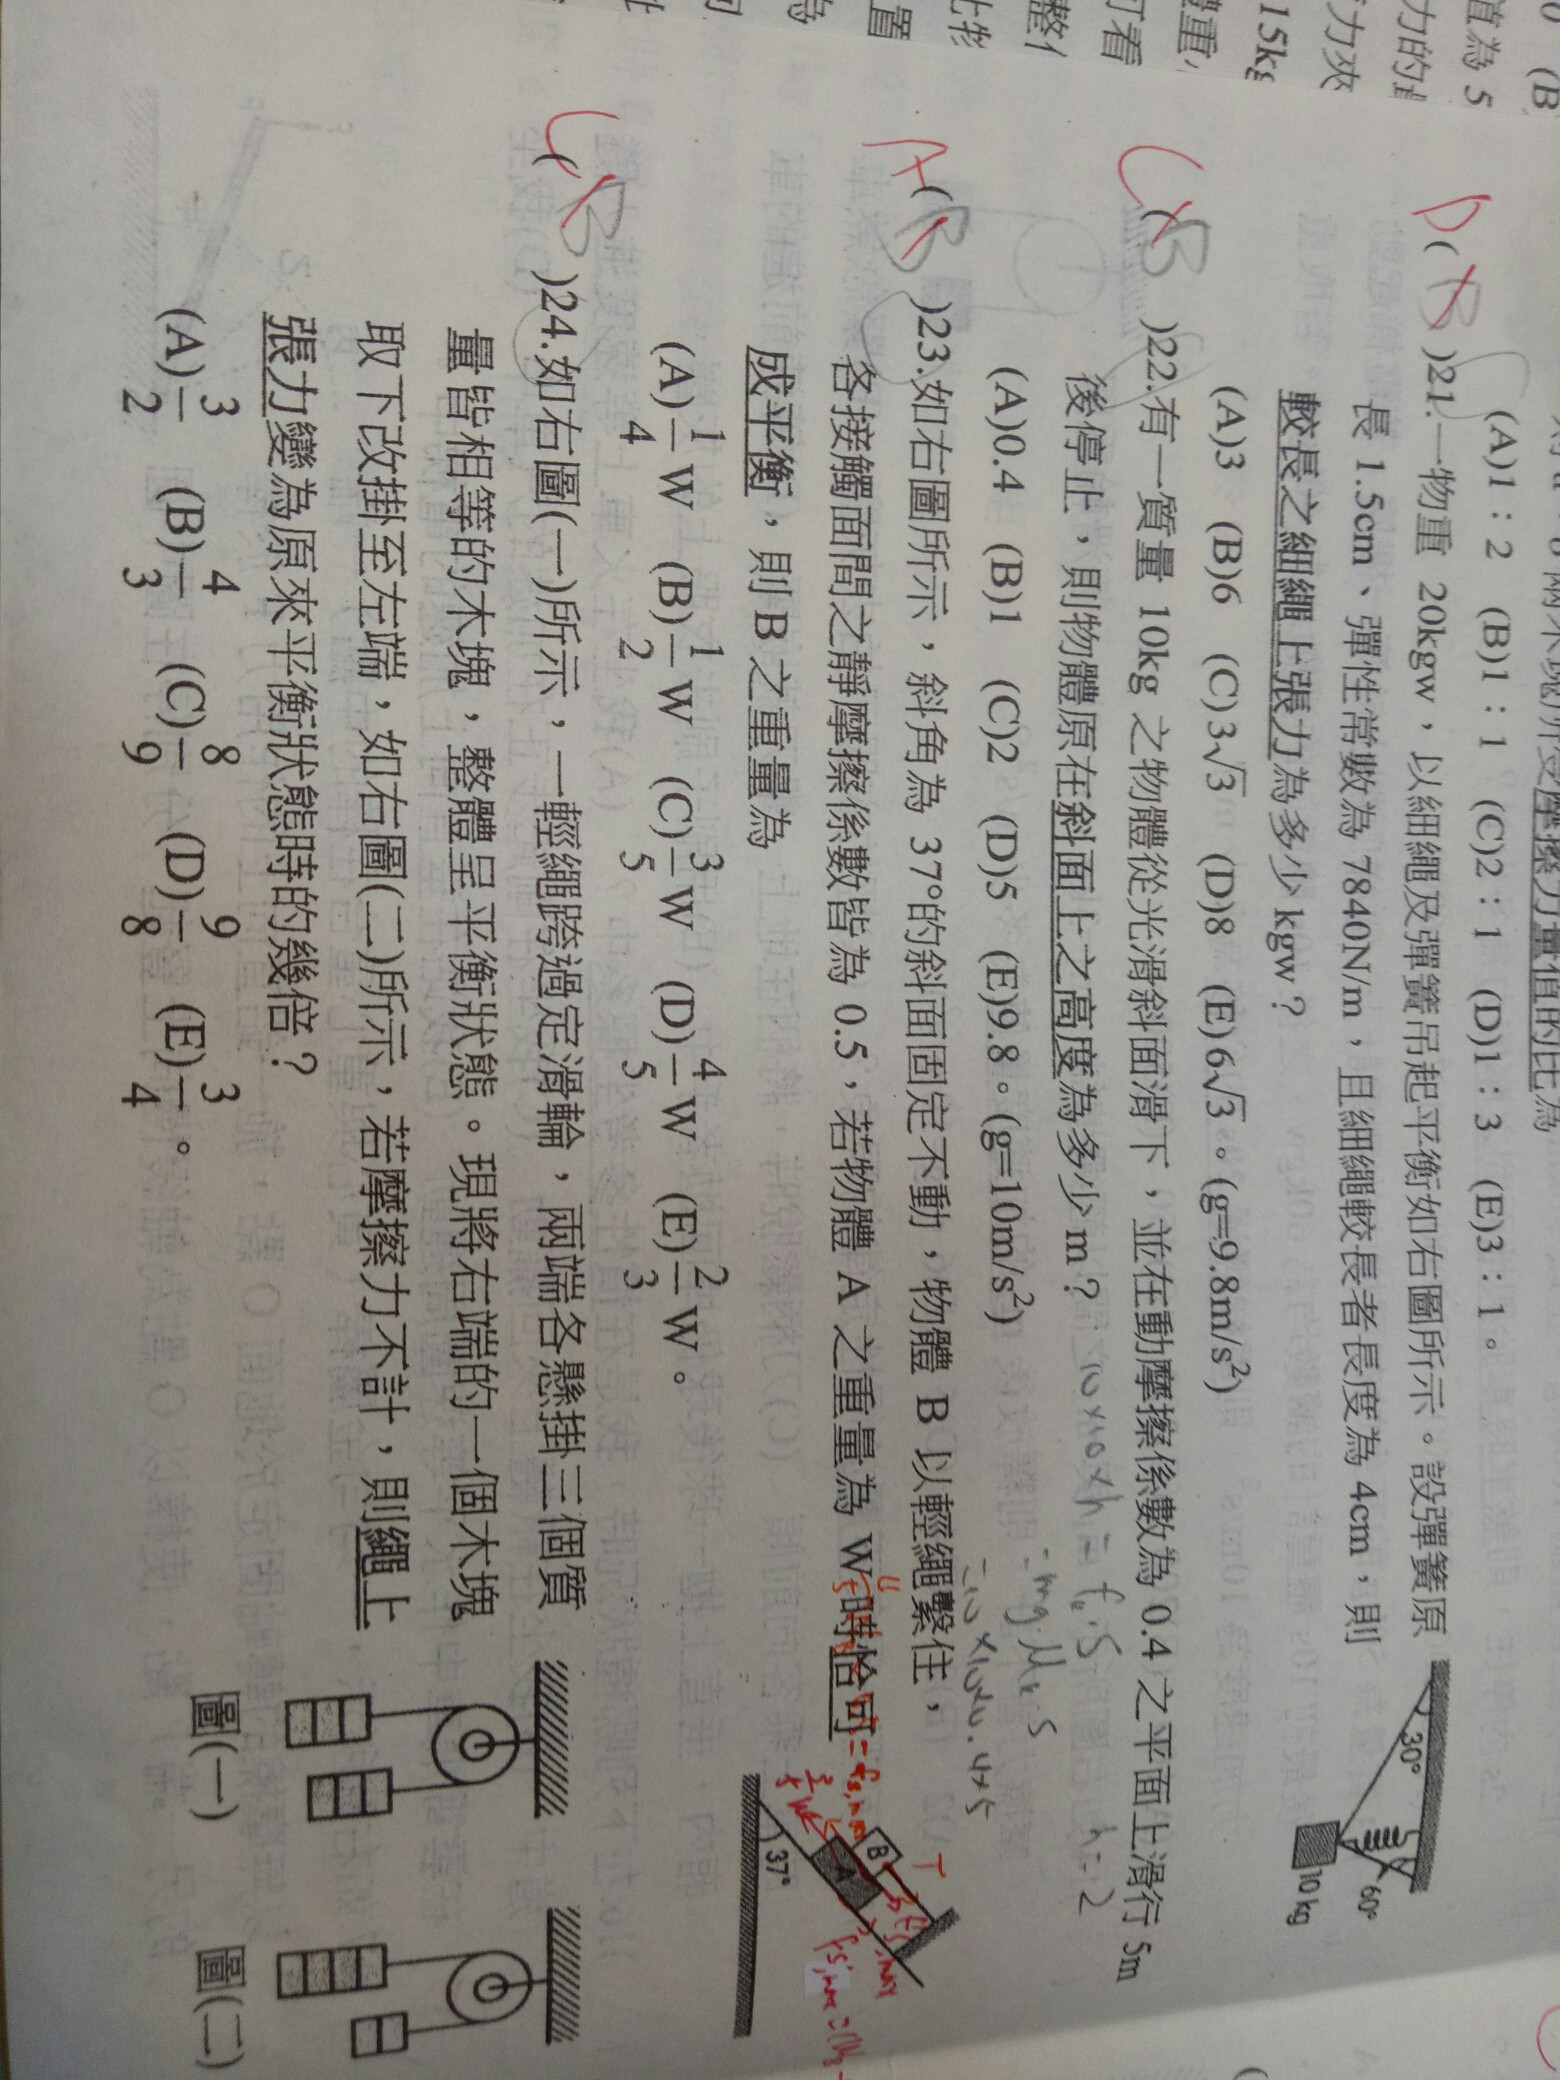 (A)1：2 (B)1：1 (C)2：1 (D)1：3 (E)3：1。
D( B )21.一物重 20kgw，以細繩及彈簧吊起平衡如右圖所示。設彈簧原
長 1.5cm、彈性常數為 7840N/m，且細繩較長者長度為 4cm，則
較長之細繩上張力為多少 kgw？
(A)3 (B)6 (C)3√3 (D)8 (E)6√3。(g=9.8m/s²)
30°
60°
10 kg
C( B )22.有一質量 10kg 之物體從光滑斜面滑下，並在動摩擦係數為 0.4 之平面上滑行 5m
後停止，則物體原在斜面上之高度為多少 m？
(A)0.4 (B)1 (C)2 (D)5 (E)9.8。(g=10m/s²)
10×10×h = fk·S
=mg·μk·S
=10×10×0.4×5
h=2
A( B )23.如右圖所示，斜角為 37°的斜面固定不動，物體 B 以輕繩繫住，
各接觸面間之靜摩擦係數皆為 0.5，若物體 A 之重量為 W 時恰可
成平衡，則 B 之重量為
(A)1/4 W (B)1/2 W (C)3/5 W (D)4/5 W (E)2/3 W。
T
B
A
37°
C( B )24.如右圖(一)所示，一輕繩跨過定滑輪，兩端各懸掛三個質
量皆相等的木塊，整體呈平衡狀態。現將右端的一個木塊
取下改掛至左端，如右圖(二)所示，若摩擦力不計，則繩上
張力變為原來平衡狀態時的幾倍？
(A)3/2 (B)4/3 (C)8/9 (D)9/8 (E)3/4。
圖(一)
圖(二)
0 (B
直為 5
力夾
15kg
體重
可看
比物
置
為